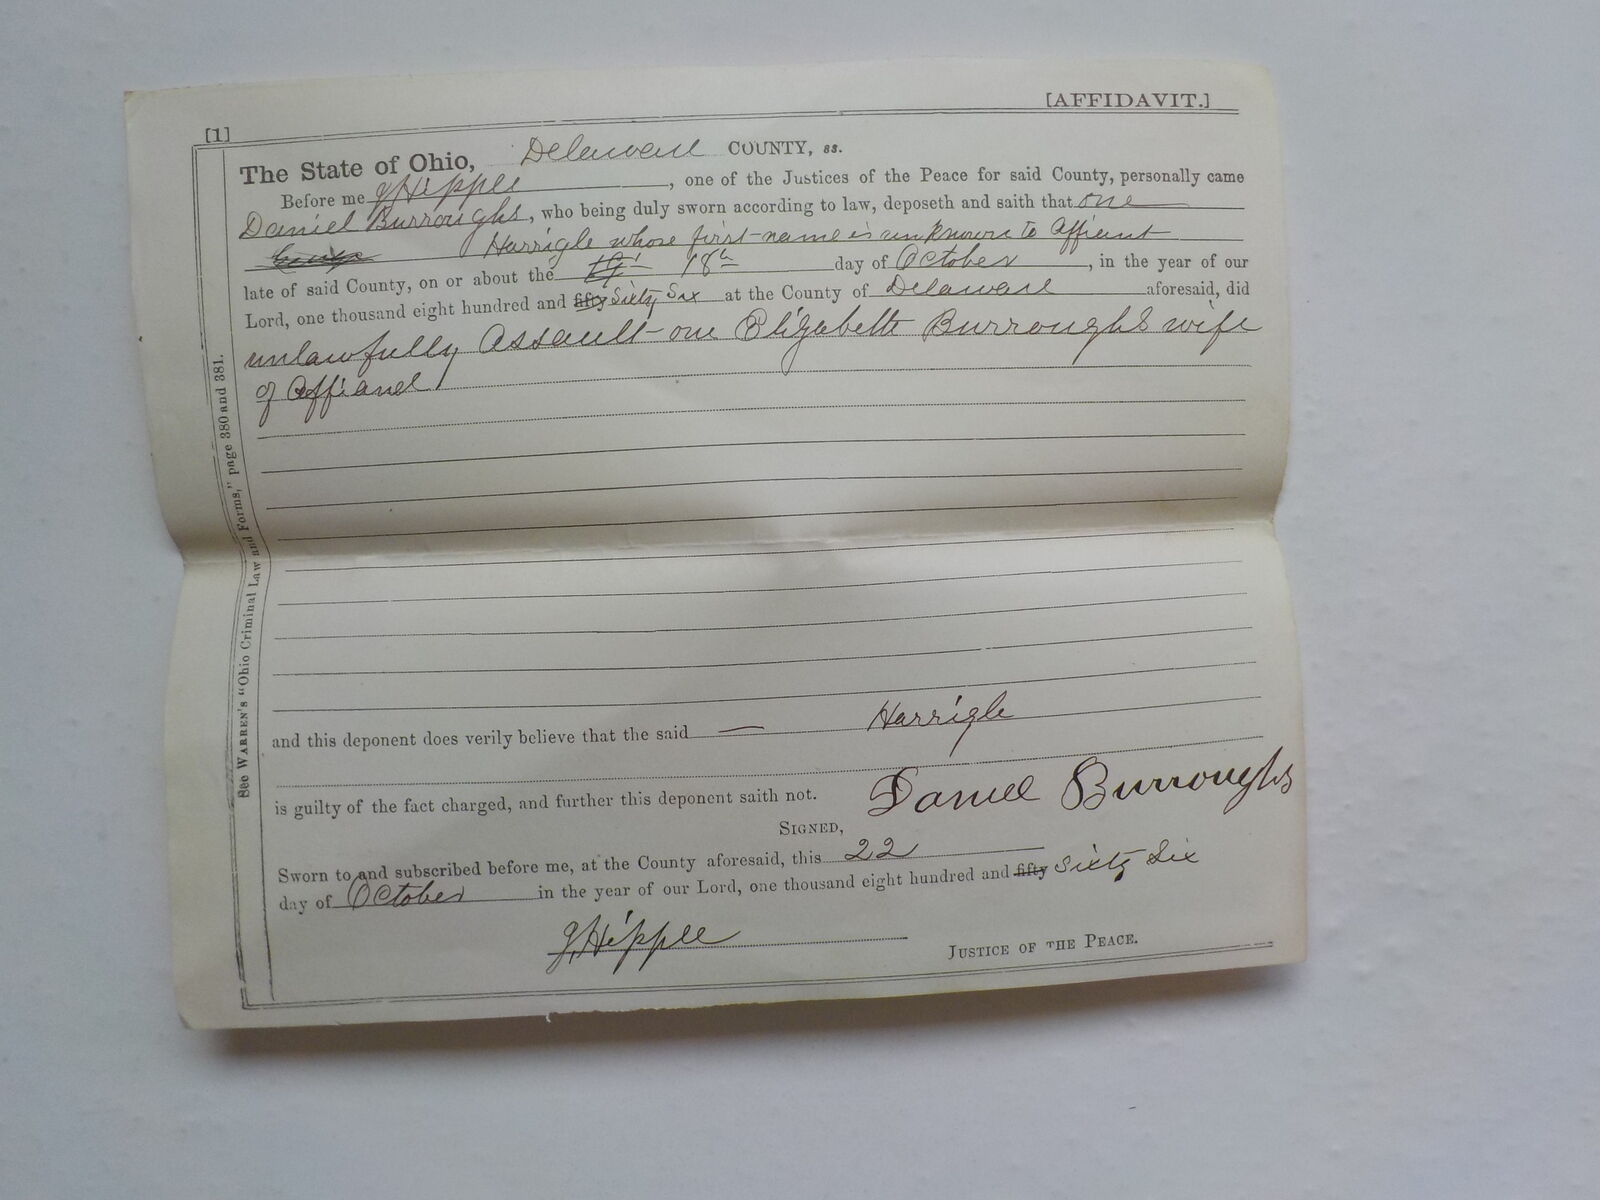 [1] [AFFIDAVIT.]
The State of Ohio, Delaware COUNTY, ss.
Before me J Hipple, one of the Justices of the Peace for said County, personally came
Daniel Burroughs, who being duly sworn according to law, deposeth and saith that one
Harrigle whose first name is unknown to Affiant
late of said County, on or about the 18th day of October, in the year of our
Lord, one thousand eight hundred and fifty Sixty Six at the County of Delaware aforesaid, did
unlawfully Assault one Elizabeth Burroughs wife
of Affiand
and this deponent does verily believe that the said — Harrigle
is guilty of the fact charged, and further this deponent saith not.
SIGNED, Daniel Burroughs
Sworn to and subscribed before me, at the County aforesaid, this 22
day of October in the year of our Lord, one thousand eight hundred and fifty Sixty Six
J, Hipple JUSTICE OF THE PEACE.
See WARREN'S "Ohio Criminal Law and Forms," page 380 and 381.